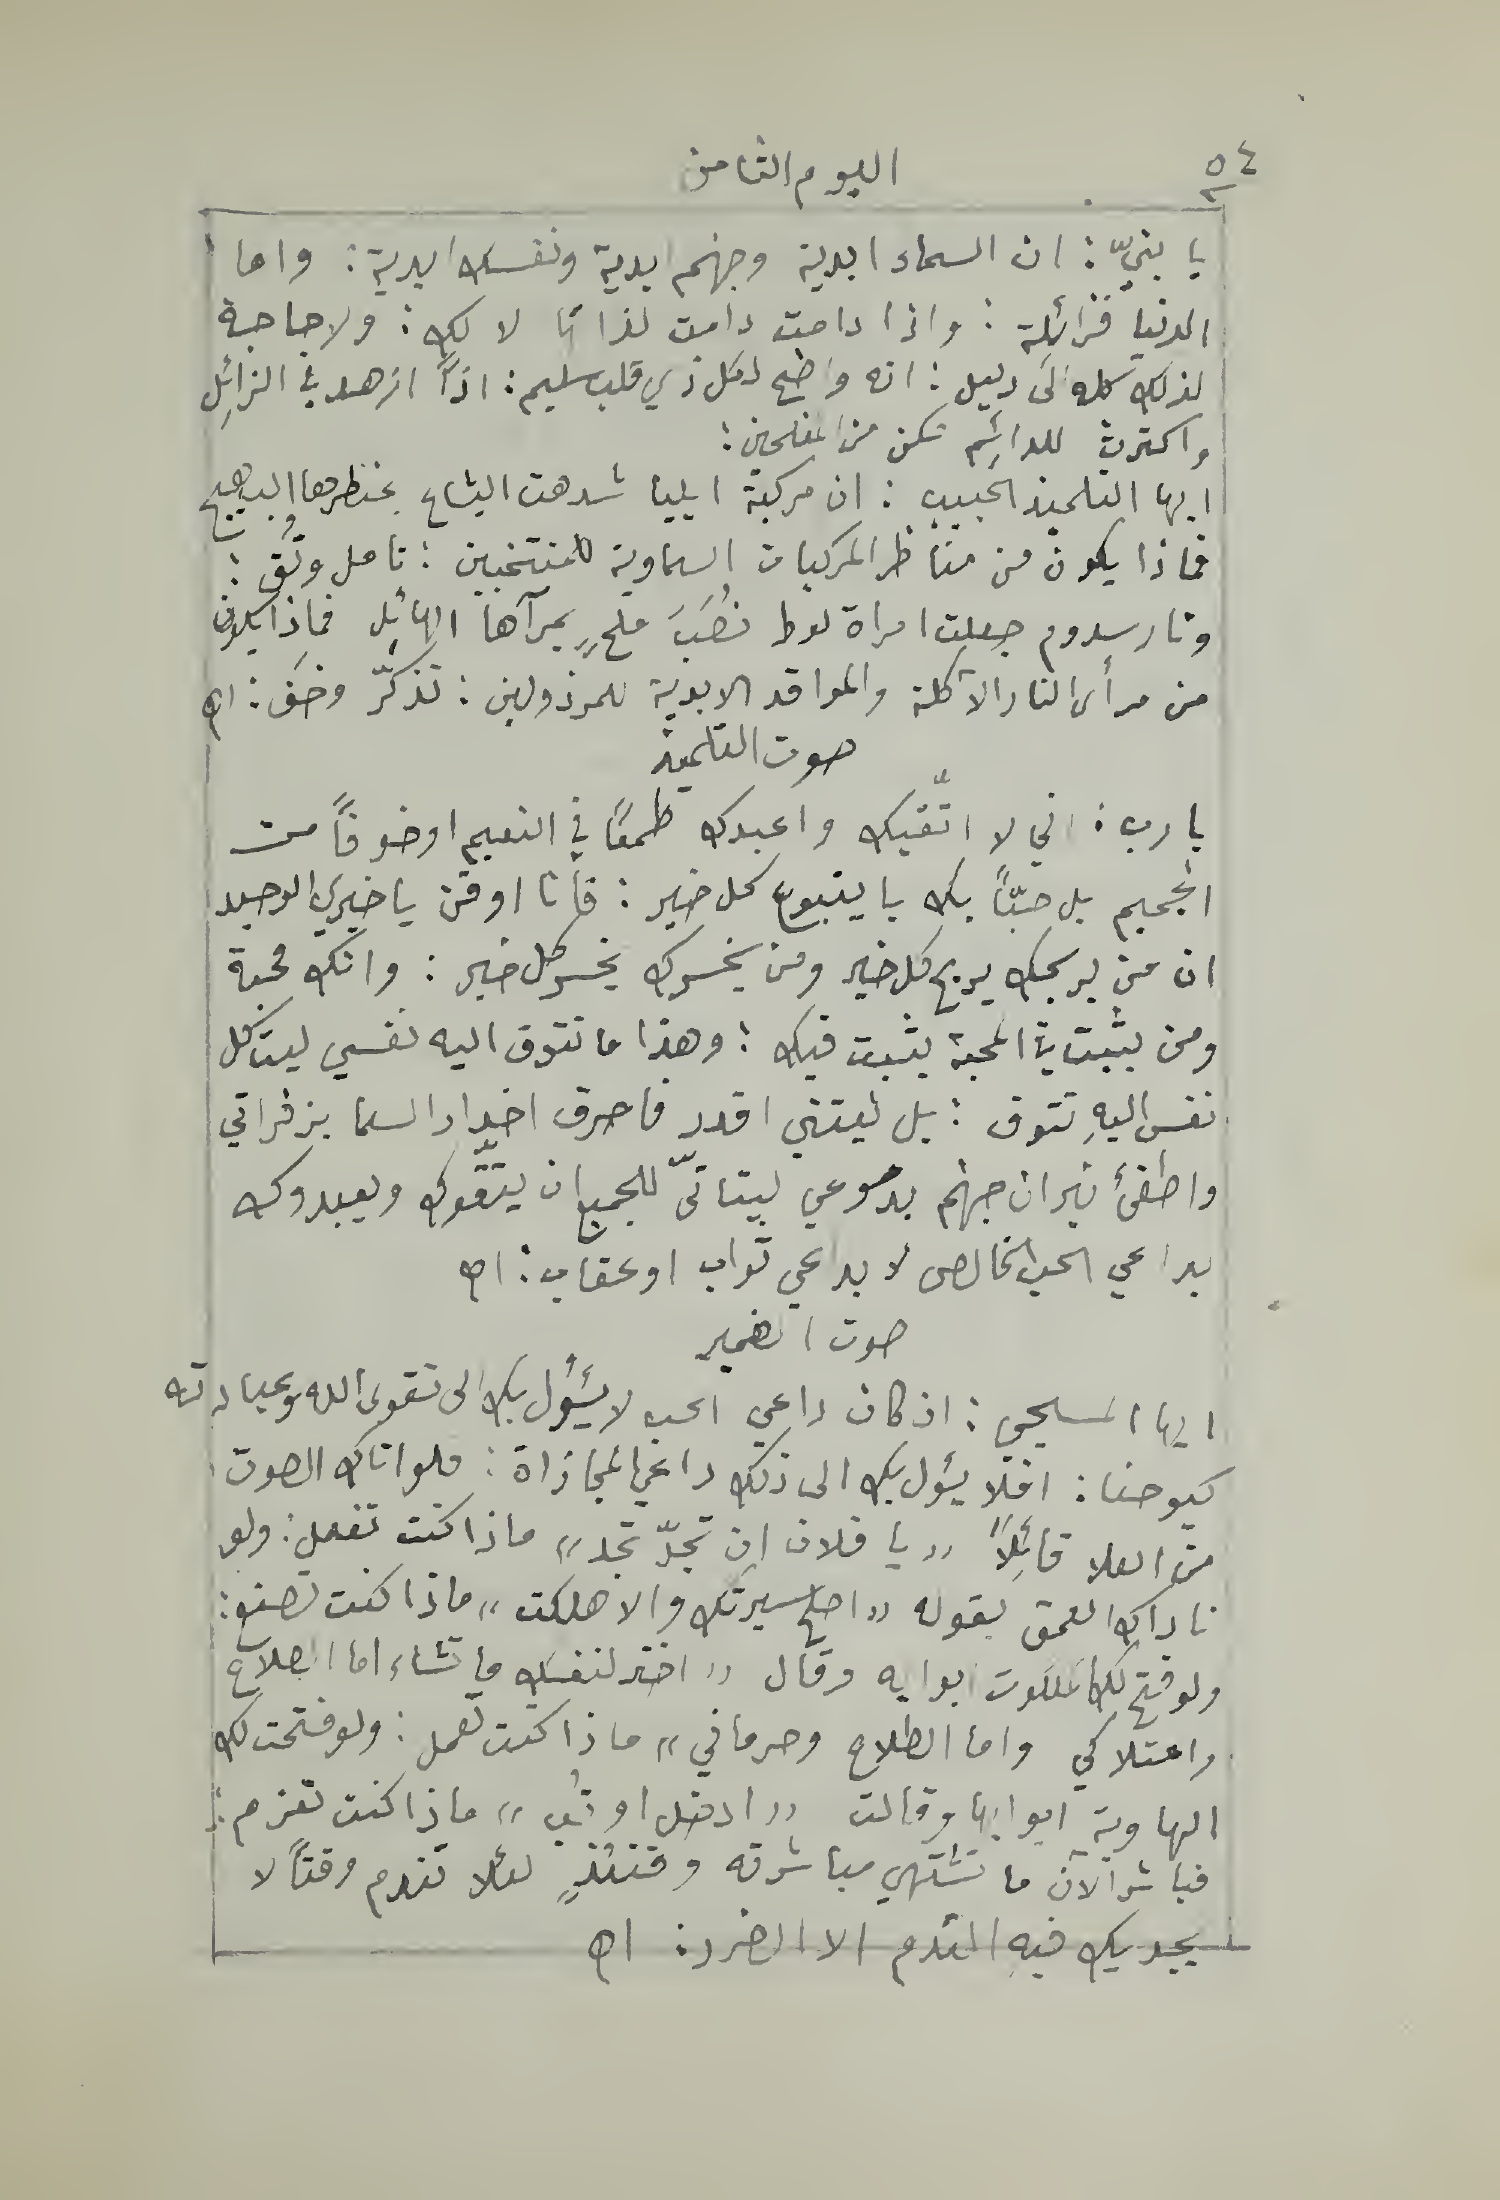 ٥٤
اليوم الثامن
يا بنيّ : ان السماء ابدية وجهنم ابدية ونفسك ابدية : واما
الدنيا فزائلة : واذا دامت دامت لذاتها لا لك : ولا حاجة
لذلك كله الى دليل : انه واضح لكل ذي قلب سليم : اذاً ازهد في الزائِلِ
واكترث للدائِم تكن من المفلحين :
ايها التلميذ الحبيب : ان مركبة ايليا شدهت اليشاع بمنظرها البهيج
فماذا يكون من مناظر المركبات السماوية للمنتخبين : تامل وتُق :
ونار سدوم جعلت امراة لوط نُصُبَ ملحٍ بمرآها الهائِل فماذا يكون
من مرأى النار الآكلة والمواقد الابدية للمرذولين : تذكّر وخَف : اھ
صوت التلميذ
يا رب : اني لا اتّقيك واعبدك طمعًا في النعيم او خوفًا من
الجحيم بل حبًّا بك يا ينبوع كل خير : فأنا اوقن يا خيري الوحيد
ان من يربحك يربح كل خير ومن يخسرك يخسر كل خير : وانك محبة
ومن يثبت في المحبة يثبت فيك : وهذا ما تتوق اليه نفسي ليت كل
نفس اليهِ تتوق : بل ليتني اقدر فاحرق اخدار السما بزفراتي
واطفئ نيران جهنم بدموعي ليتاتّى للجميع ان يتّقوك ويعبدوك
بداعي الحب الخالص لا بداعي ثواب او عقاب : اھ
صوت الضمير
ايها المسيحي : ان كان داعي الحب لا يئُول بك الى تقوى الله وعبادته
كيوحنا : افلا يئول بك الى ذلك داعي المجازاة : فلو اتاك الصوت
من العلا قائِلًا « يا فلان ان تجدّ تجد » ماذا كنت تفعل : ولو
ناداك العمق بقوله « اصلح سيرتك والا هلكت » ماذا كنت تصنع :
ولو فتح لك الملكوت ابوابه وقال « اختر لنفسك ما تشاء اما الصلاح
وامتلاكي واما الطلاح وحرماني » ماذا كنت تعمل : ولو فتحت لك
الهاوية ابوابها وقالت « ادخل او تُب » ماذا كنت تعزم :
فباشر الآن ما تشتهي مباشرته وقتئذٍ لئلا تندم وقتًا لا
يجديك فيهِ الندم الا الضرر : اھ